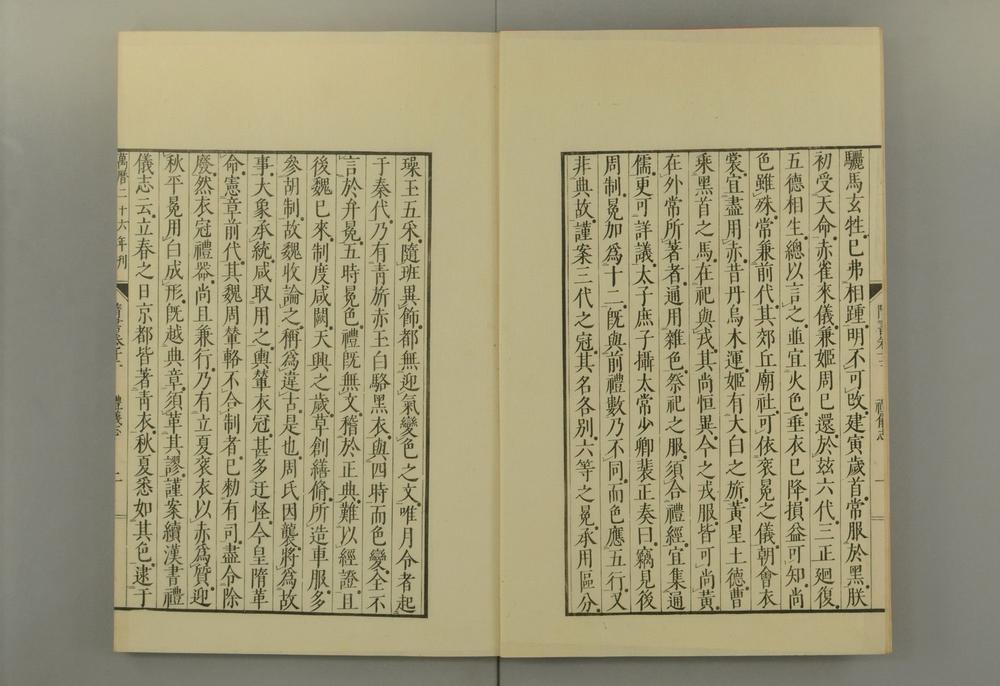 驪馬玄牲已弗相踵明不可改建寅歲首常服於黑朕
初受天命赤雀來儀兼姬周已還於玆六代三正廻復
五德相生總以言之並宜火色垂衣已降損益可知尚
色雖殊常兼前代其郊丘廟社可依衮冕之儀朝會衣
裳宜盡用赤昔丹烏木運姬有大白之旂黃星土德曹
乘黑首之馬在祀與戎其尚恒異今之戎服皆可尚黃
在外常所著者通用雜色祭祀之服須合禮經宜集通
儒更可詳議太子庶子攝太常少卿裴正奏曰竊見後
周制冕加爲十二旣與前禮數乃不同而色應五行又
非典故謹案三代之冠其名各別六等之冕承用區分
璪玉五采隨班異飾都無迎氣變色之文唯月令者起
于秦代乃有青旂赤玉白駱黑衣與四時而色變全不
言於弁冕五時冕色禮旣無文稽於正典難以經證且
後魏已來制度咸闕天興之歲草創繕脩所造車服多
參胡制故魏收論之稱爲違古是也周氏因襲將爲故
事大象承統咸取用之輿輦衣冠甚多迂怪今皇隋革
命憲章前代其魏周輦輅不合制者已勑有司盡令除
廢然衣冠禮器尚且兼行乃有立夏衮衣以赤爲質迎
秋平冕用白成形旣越典章須革其謬謹案續漢書禮
儀志云立春之日京都皆著青衣秋夏悉如其色逮于
萬曆二十六年刊 禮儀志 二